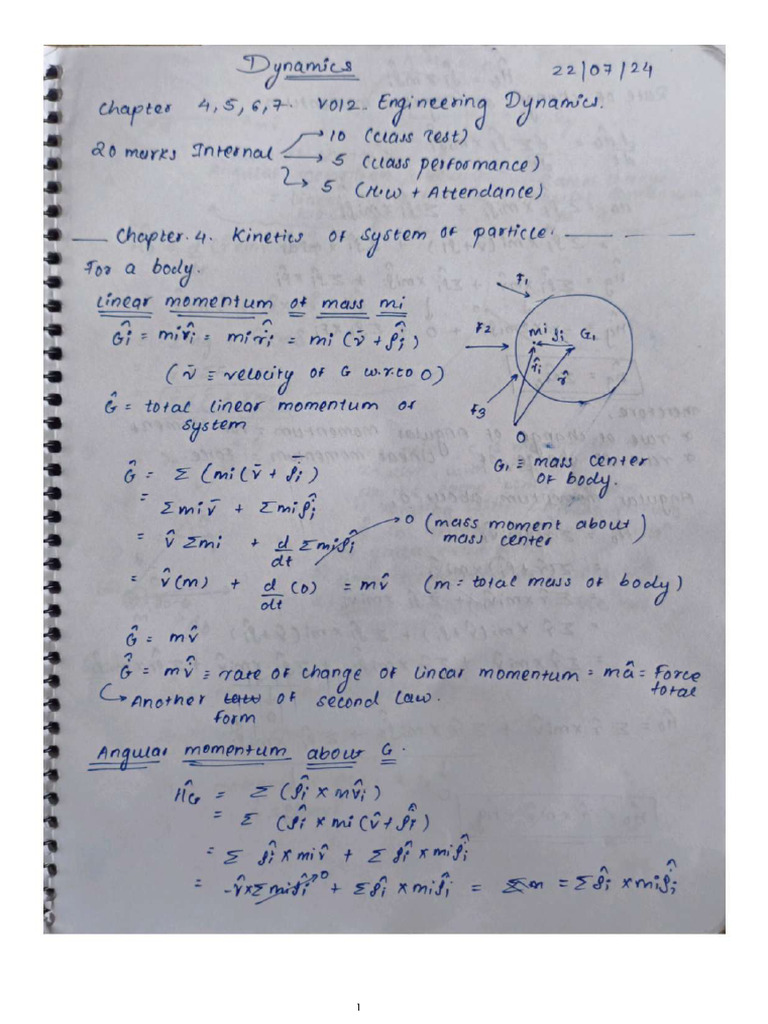 Dynamics
22/07/24
Chapter 4,5,6,7. Vol2. Engineering Dynamics.
20 marks Internal → 10 (Class Test)
→ 5 (Class performance)
→ 5 (H.W + Attendance)
Chapter.4. Kinetics of system of particle.
For a body.
Linear momentum of mass mi
Ĝi = miv̂i = mi r̂̇i = mi (v̄ + ρ̂̇i)
(v̄ ≡ velocity of G w.r.to O)
Ĝ = total linear momentum of
system
F1
F2
F3
mi ρi G1
r̂i r̂
O
G1 ≡ mass center
of body.
Ĝ = Σ (mi(v̄ + ρ̄̇i)
= Σmiv̄ + Σmiρ̂̇i
= v̂ Σmi + d/dt Σmiρ̂i → 0 (mass moment about mass center)
= v̂(m) + d/dt (0) = mv̂ (m = total mass of body)
Ĝ = mv̂
Ĝ̇ = mv̂̇ = rate of change of linear momentum = mâ = Force total
↳ Another law of second law.
form
Angular momentum about G.
ĤG = Σ (ρ̂i × mv̂i)
= Σ (ρ̂i × mi(v̂ + ρ̂̇i)
= Σ ρ̂i × miv̂ + Σ ρ̂i × miρ̂̇i
= -v̂×Σ miρ̂i → 0 + Σρ̂i × miρ̂̇i = Σm = Σρ̂i × miρ̂̇i
1